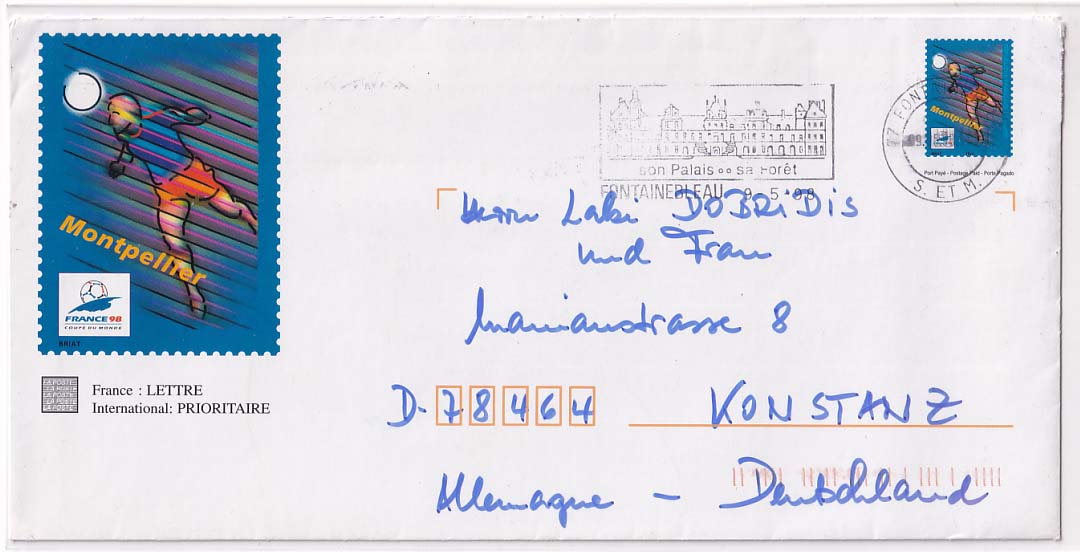 Montpellier
FRANCE 98
COUPE DU MONDE
BRIAT
LA POSTE
LA POSTE
LA POSTE
LA POSTE
France : LETTRE
International: PRIORITAIRE
son Palais sa Forêt
FONTAINEBLEAU 9-5-98
77 FONT
S. ET M.
Montpellier
Port Payé - Postage Paid - Porte Pagado
Herrn Laki DOBRIDIS
und Frau
8
D-78464 KONSTANZ
Allemagne - Deutschland